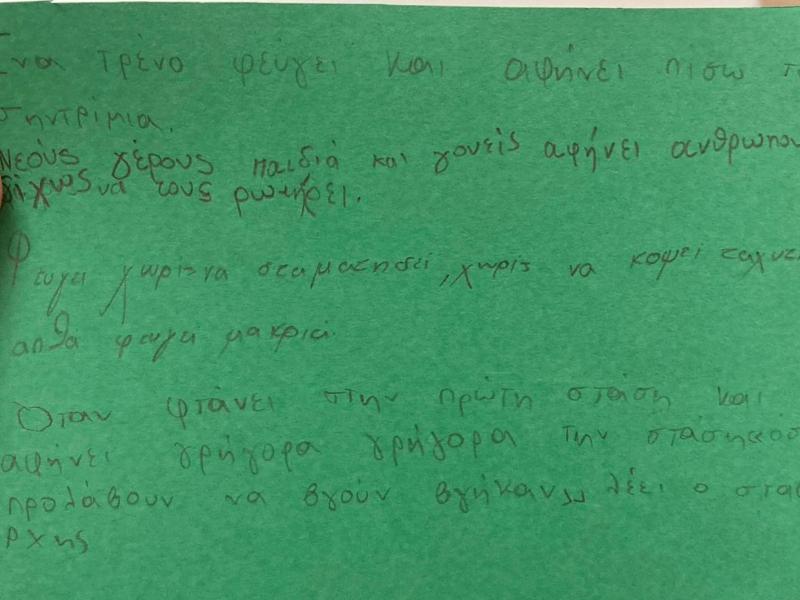 Ένα τρένο φεύγει και αφήνει πίσω τ
σηντρίμια.
Νεούς γέρους παιδιά και γονείς αφήνει ανθρωπου
δίχως να τους ρωτήσει.
Φευγει χωρις να σταματησει, χωρις να κοψει ταχυτ
απλα φευγει μακρια.
Όταν φτάνει στην πρώτη στάση και
αφήνει γρήγορα γρήγορα την στάση
προλάβουν να βγούν βγήκαν λέει ο στα
ρχης